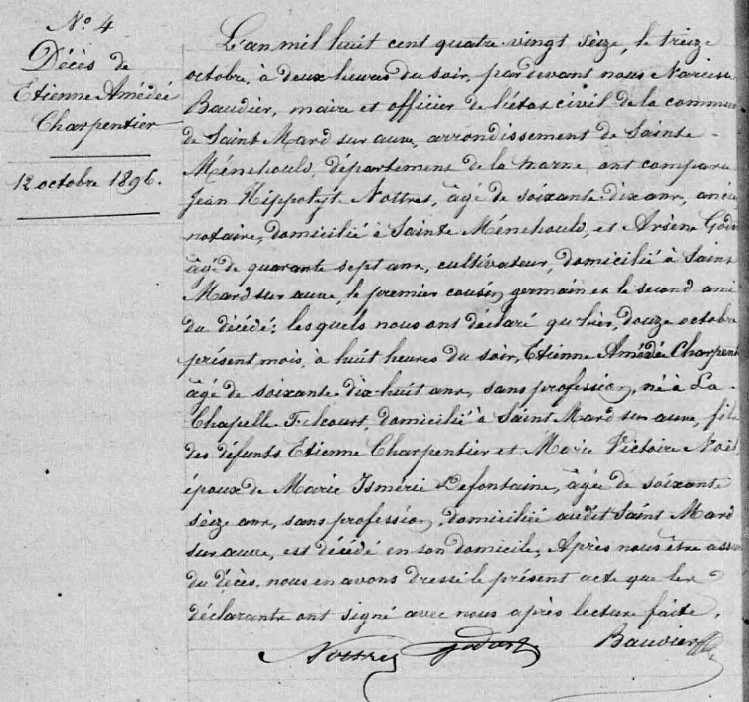 N° 4
Décès de
Etienne Amédée
Charpentier
12 octobre 1896.
L'an mil huit cent quatre-vingt seize, le treize
octobre, à deux heures du soir, pardevant nous Narcisse
Baudier, maire et officier de l'état civil de la commune
de Saint Mard sur auve, arrondissement de Sainte-
Ménehould, département de la marne, ont comparu
Jean Hippolyte Nottret, âgé de soixante-dix ans, ancien
notaire, domicilié à Sainte Ménehould, et Arsène Godart
âgé de quarante sept ans, cultivateur, domicilié à Saint
Mard sur auve, le premier cousin germain et le second ami
du décédé; lesquels nous ont déclaré qu'hier, douze octobre
présent mois, à huit heures du soir, Etienne Amédée Charpent
âgé de soixante dix-huit ans, sans profession, né à La
Chapelle Felcourt, domicilié à Saint Mard sur auve, fils
des défunts Etienne Charpentier et Marie Victoire Noël,
époux de Marie Ismérie Defontaine, âgée de soixante
seize ans, sans profession, domiciliée audit Saint Mard
sur auve, est décédé en son domicile, Après nous être assu
du décès, nous en avons dressé le présent acte que les
déclarants ont signé avec nous après lecture faite.
Nottret Godart Baudier